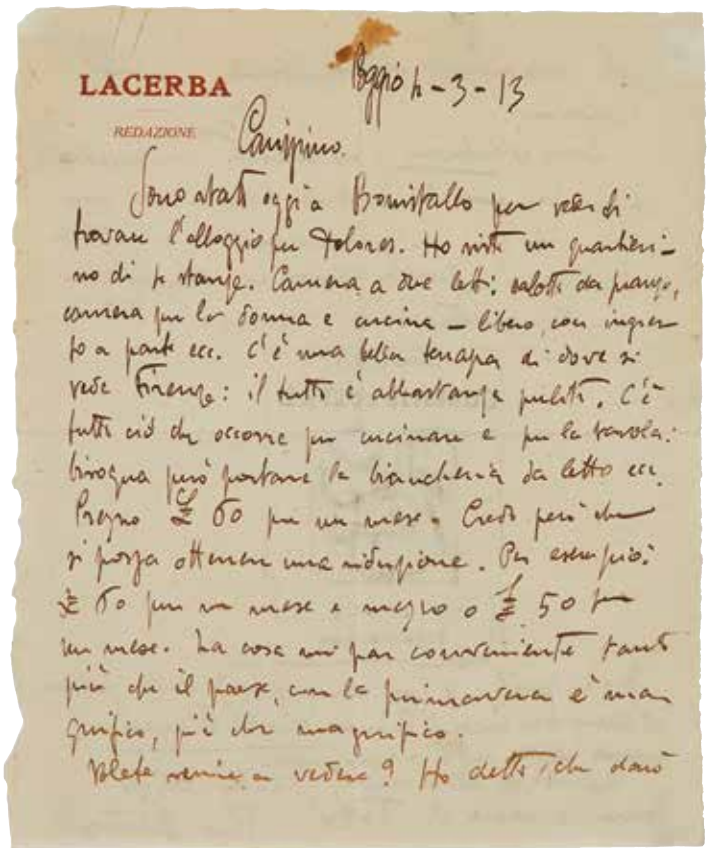 LACERBA
REDAZIONE
Poggio 4-3-13
Carissimo.
Sono stato oggi a Bonistallo per veder di
trovare l'alloggio per Dolores. Ho visto un quartieri-
no di 4 stanze. Camera a due letti; salotto da pranzo,
camera per la donna e cucina – libero, con ingres
so a parte ecc. C'è una bella terrazza di dove si
vede Firenze: il tutto è abbastanza pulito. C'è
tutto ciò che occorre per cucinare e per la tavola:
bisogna però portare la biancheria da letto ecc.
Prezzo £ 60 per un mese. Credo però che
si possa ottenere una riduzione. Per esempio:
£ 60 per un mese e mezzo o £ 50 per
un mese. La cosa mi par conveniente tanto
più che il paese, con la primavera è ma
gnifico, più che magnifico.
Volete venire a vedere? Ho detto che darò